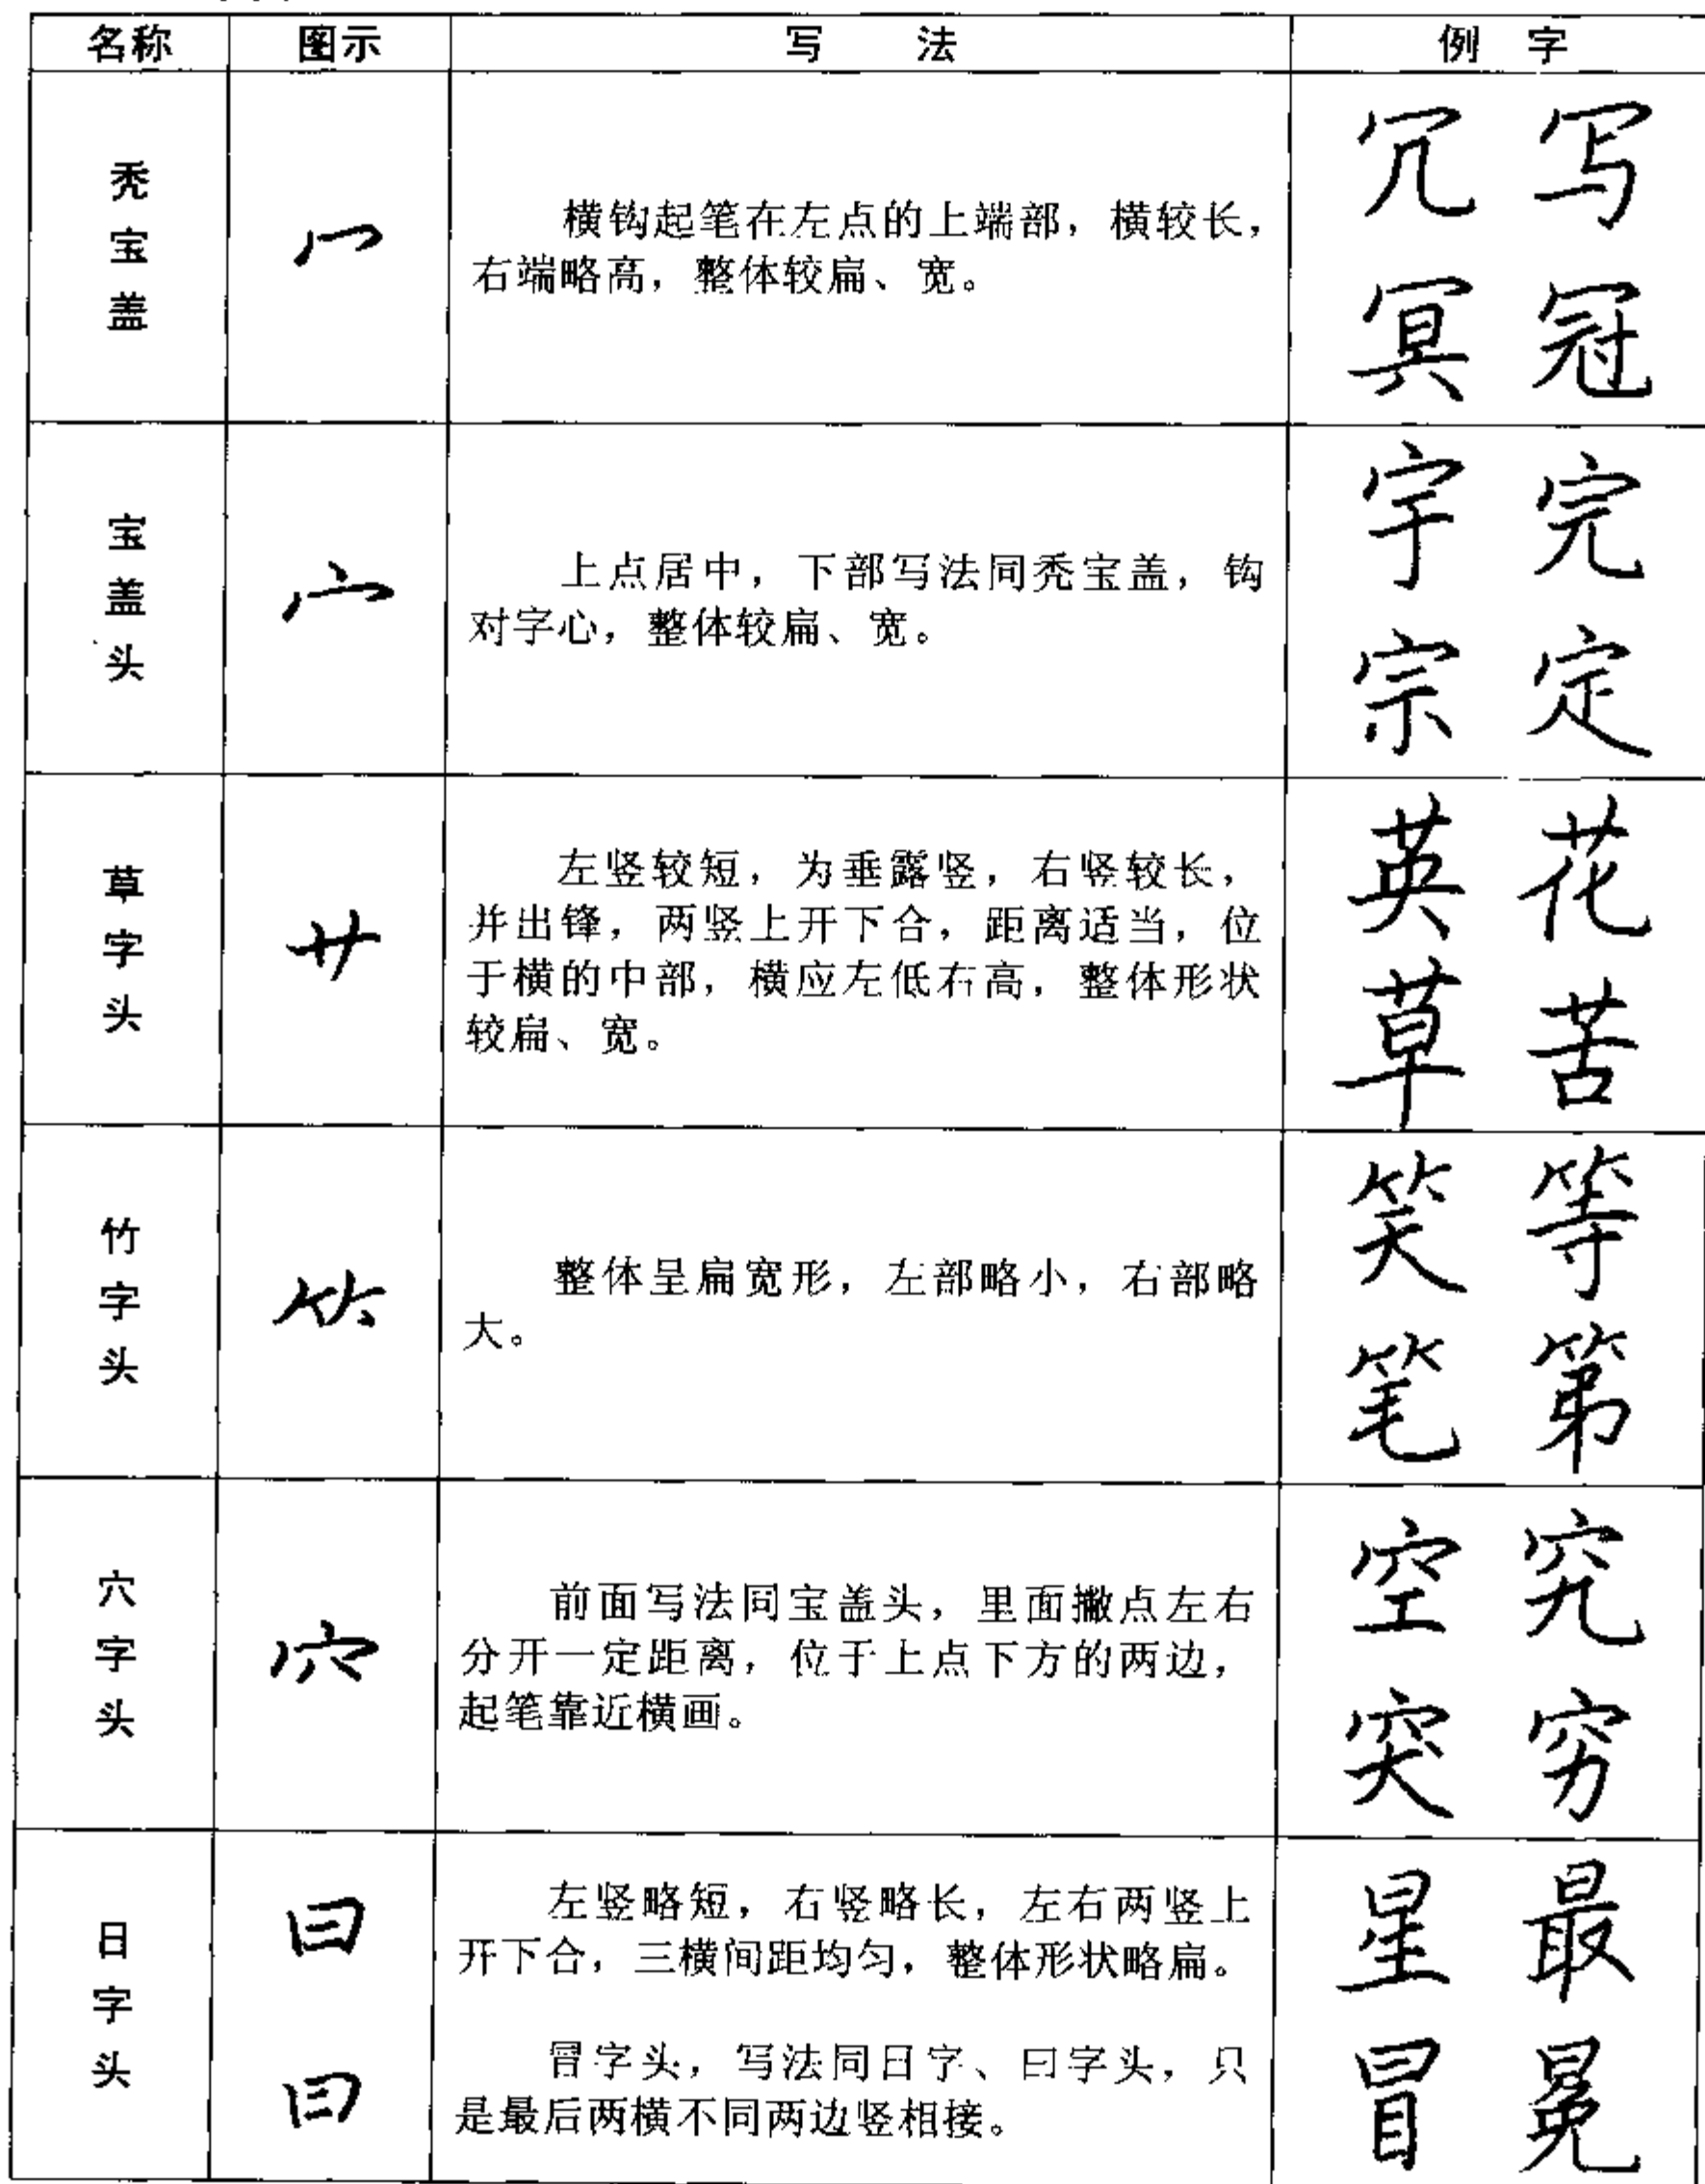 名称 图示 写 法 例 字
秃宝盖 冖 横钩起笔在左点的上端部，横较长， 冗 写
右端略高，整体较扁、宽。 冥 冠
宝盖头 宀 上点居中，下部写法同秃宝盖，钩 宇 完
对字心，整体较扁、宽。 宗 定
草字头 艹 左竖较短，为垂露竖，右竖较长， 英 花
并出锋，两竖上开下合，距离适当，位
于横的中部，横应左低右高，整体形状 草 苦
较扁、宽。
竹字头 ⺮ 整体呈扁宽形，左部略小，右部略 笑 等
大。 笔 第
穴字头 穴 前面写法同宝盖头，里面撇点左右 空 究
分开一定距离，位于上点下方的两边，
起笔靠近横画。 突 穷
日字头 曰 左竖略短，右竖略长，左右两竖上 星 最
开下合，三横间距均匀，整体形状略扁。
冃 冒字头，写法同日字、曰字头，只 冒 冕
是最后两横不同两边竖相接。